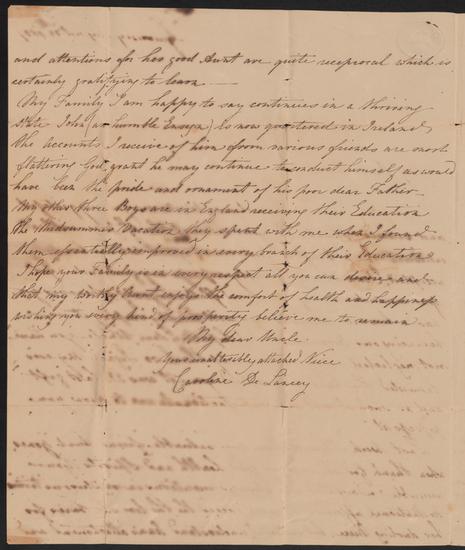 and attentions for her good Aunt are quite reciprocal which is
certainly gratifying to learn
My Family I am happy to say continues in a thriving
state John (an humble Ensign) is now quartered in Ireland
the accounts I receive of him from various friends are most
flattering God grant he may continue to conduct himself as would
have been the pride and ornament of his poor dear Father
My other three Boys are in England receiving their Education
the Midsummer Vacation they spent with me when I found
them essentially improved in every branch of their Education
I hope your Family is in every respect all you can desire and
that my worthy Aunt enjoys the comfort of health and happiness
wishing you every kind of prosperity believe me to remain
My Dear Uncle
Your unalterably attached Niece
Caroline De Lancey